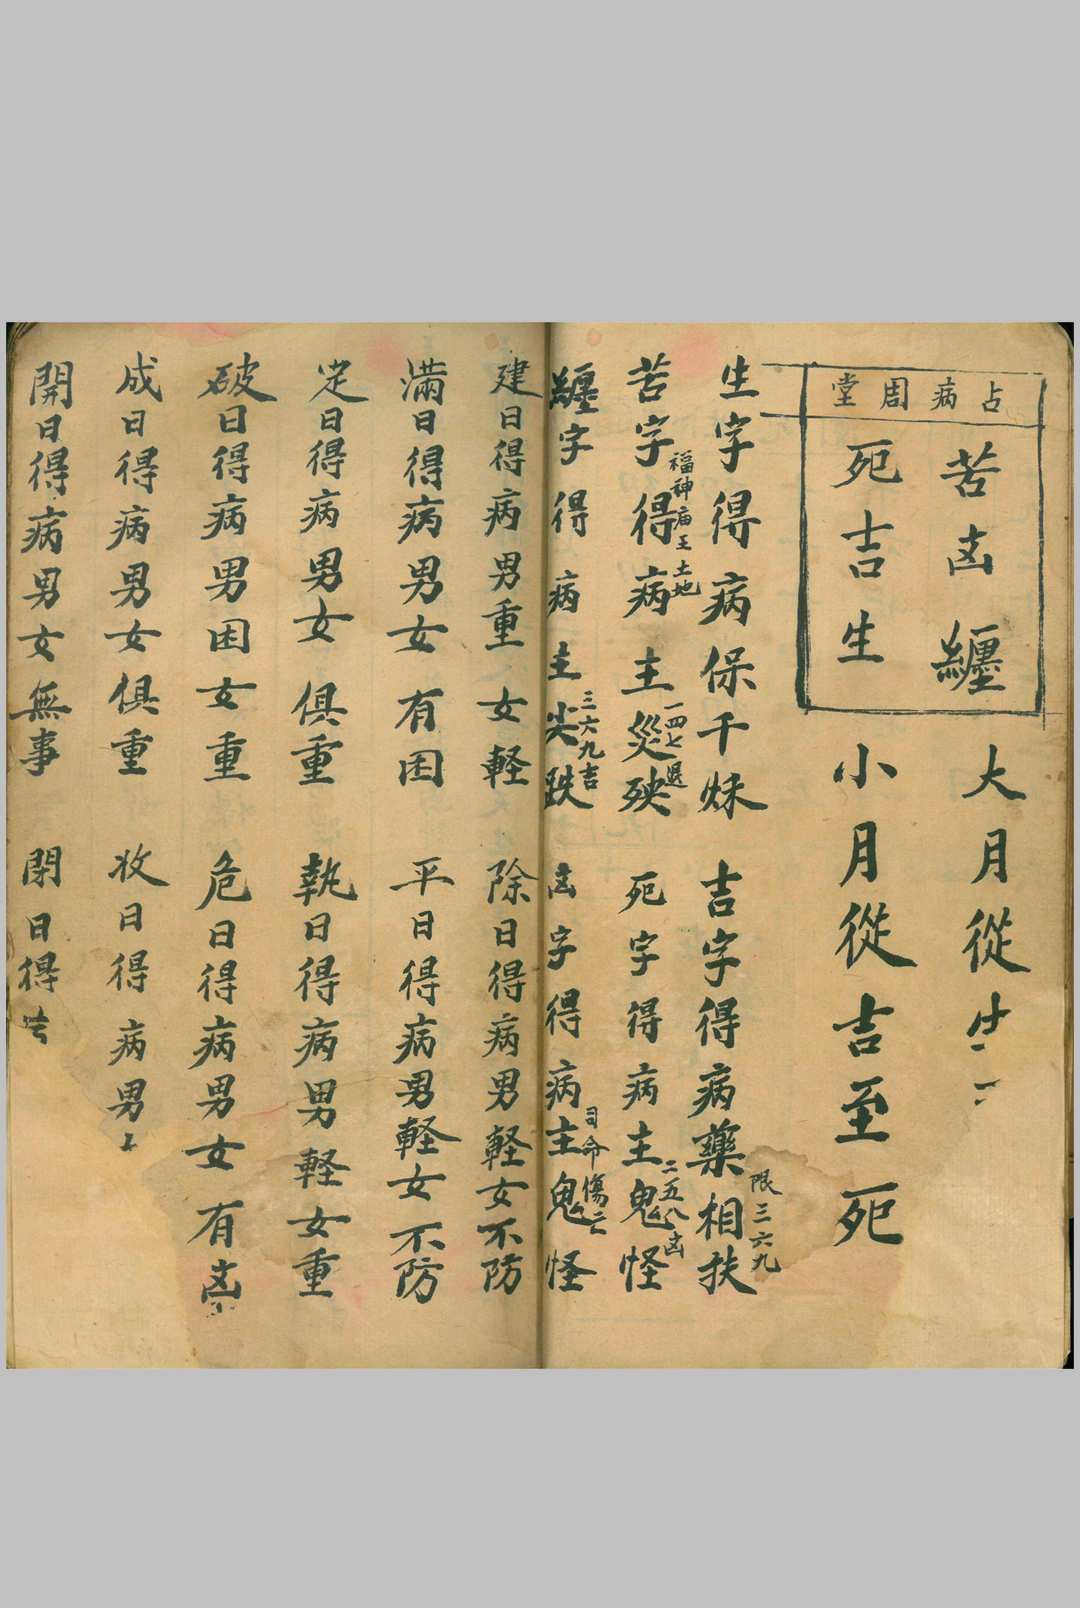 占病周堂
苦凶纒
死吉生
大月從生
小月從吉至死
生字得病保干秌
吉字得病藥相扶
限三六九
苦字得病主災殃
福神庙王土地
一四七退
死字得病主鬼怪
二五八凶
纒字得病主尖跌
三六九吉
凶字得病主鬼怪
司命傷亡
建日得病男重女軽
除日得病男軽女不防
满日得病男女有困
平日得病男軽女不防
定日得病男女俱重
執日得病男軽女重
破日得病男困女重
危日得病男女有凶
成日得病男女俱重
收日得病男
開日得病男女無事
閉日得